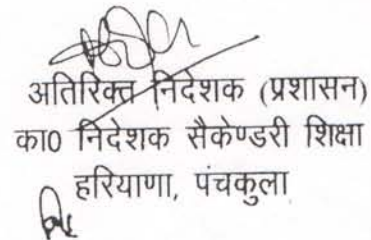 अतिरिक्त निदेशक (प्रशासन)
का0 निदेशक सैकेण्डरी शिक्षा
हरियाणा, पंचकुला